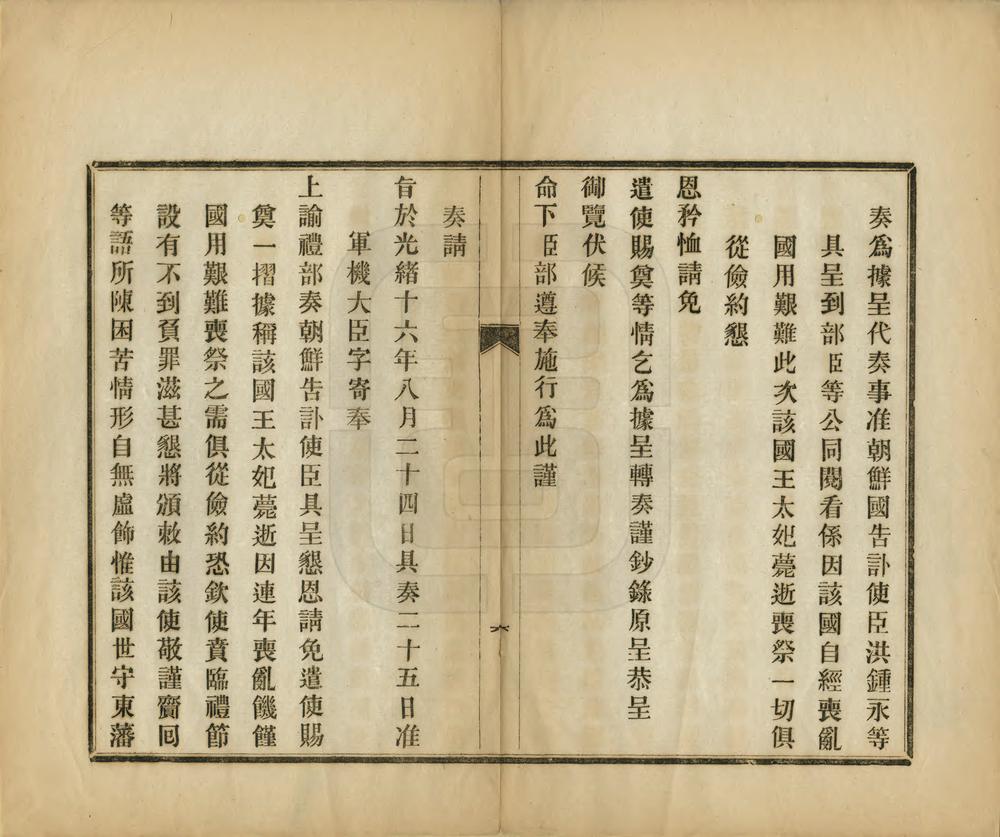 奏爲據呈代奏事准朝鮮國告訃使臣洪鍾永等
具呈到部臣等公同閱看係因該國自經喪亂
國用艱難此次該國王太妃薨逝喪祭一切俱
從儉約懇
恩矜恤請免
遣使賜奠等情乞爲據呈轉奏謹鈔錄原呈恭呈
御覽伏候
命下臣部遵奉施行爲此謹
六
奏請
旨於光緒十六年八月二十四日具奏二十五日准
軍機大臣字寄奉
上諭禮部奏朝鮮告訃使臣具呈懇恩請免遣使賜
奠一摺據稱該國王太妃薨逝因連年喪亂饑饉
國用艱難喪祭之需俱從儉約恐欽使賁臨禮節
設有不到負罪滋甚懇將頒敕由該使敬謹齎回
等語所陳困苦情形自無虛飾惟該國世守東藩